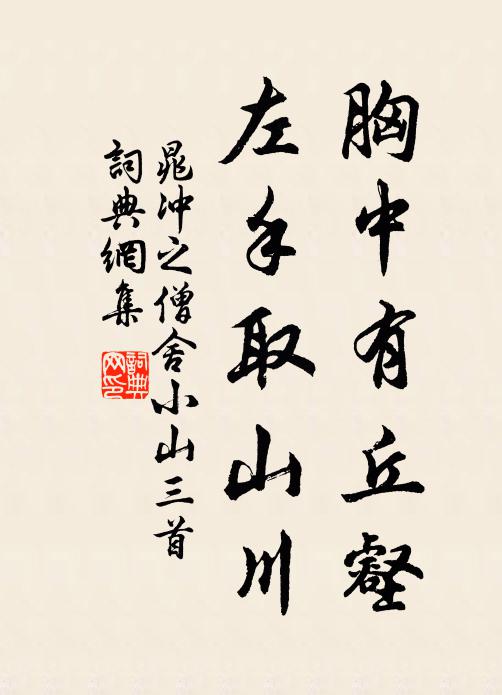 胸中有丘壑
左手取山川
晁冲之僧舍小山三首
詞典網集
詞典网印